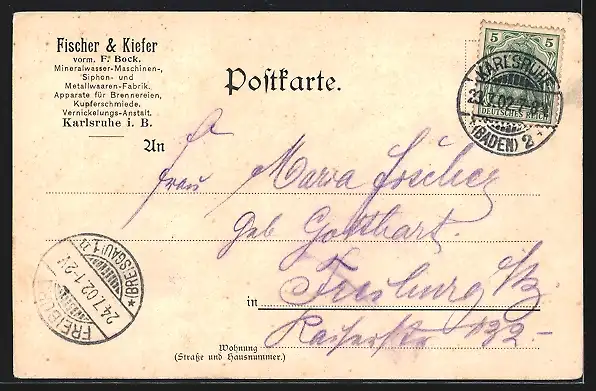 Fischer & Kiefer
vorm. F. Bock.
Mineralwasser-Maschinen-,
Siphon- und
Metallwaaren-Fabrik.
Apparate für Brennereien,
Kupferschmiede.
Vernickelungs-Anstalt.
Karlsruhe i. B.
Postkarte.
5 5
DEUTSCHES REICH
KARLSRUHE
(BADEN) 2
An
Frau Maria Fischer
geb Gotthart.
in Freiburg i/B
Kaiserstr 132-
Wohnung
(Straße und Hausnummer.)
(BREISGAU) 1
24.7.02.1-2N